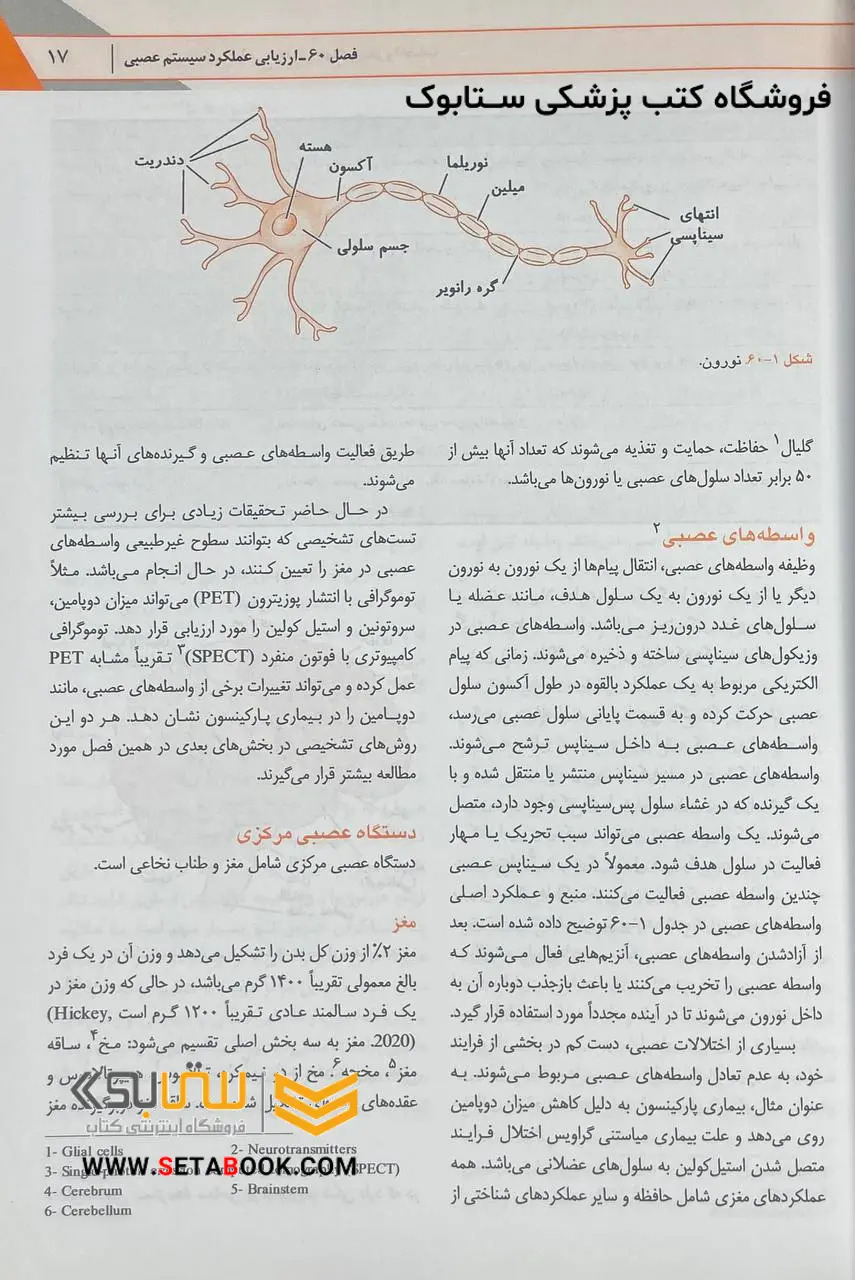 فصل ۶۰ـ ارزیابی عملکرد سیستم عصبی | ۱۷
فروشگاه کتب پزشکی ستابوک
دندریت
هسته
آکسون
نوریلما
میلین
انتهای
سیناپسی
جسم سلولی
گره رانویر
شکل ۱-۶۰. نورون.
گلیال۱ حفاظت، حمایت و تغذیه می‌شوند که تعداد آنها بیش از
۵۰ برابر تعداد سلول‌های عصبی یا نورون‌ها می‌باشد.
واسطه‌های عصبی۲
وظیفه واسطه‌های عصبی، انتقال پیام‌ها از یک نورون به نورون
دیگر یا از یک نورون به یک سلول هدف، مانند عضله یا
سلول‌های غدد درون‌ریز می‌باشد. واسطه‌های عصبی در
وزیکول‌های سیناپسی ساخته و ذخیره می‌شوند. زمانی که پیام
الکتریکی مربوط به یک عملکرد بالقوه در طول آکسون سلول
عصبی حرکت کرده و به قسمت پایانی سلول عصبی می‌رسد،
واسطه‌های عصبی به داخل سیناپس ترشح می‌شوند.
واسطه‌های عصبی در مسیر سیناپس منتشر یا منتقل شده و با
یک گیرنده که در غشاء سلول پس‌سیناپسی وجود دارد، متصل
می‌شوند. یک واسطه عصبی می‌تواند سبب تحریک یا مهار
فعالیت در سلول هدف شود. معمولاً در یک سیناپس عصبی
چندین واسطه عصبی فعالیت می‌کنند. منبع و عملکرد اصلی
واسطه‌های عصبی در جدول ۱-۶۰ توضیح داده شده است. بعد
از آزادشدن واسطه‌های عصبی، آنزیم‌هایی فعال می‌شوند که
واسطه عصبی را تخریب می‌کنند یا باعث بازجذب دوباره آن به
داخل نورون می‌شوند تا در آینده مجدداً مورد استفاده قرار گیرد.
بسیاری از اختلالات عصبی، دست کم در بخشی از فرایند
خود، به عدم تعادل واسطه‌های عصبی مربوط می‌شوند. به
عنوان مثال، بیماری پارکینسون به دلیل کاهش میزان دوپامین
روی می‌دهد و علت بیماری میاستنی گراویس اختلال فرایند
متصل شدن استیل‌کولین به سلول‌های عضلانی می‌باشد. همه
عملکردهای مغزی شامل حافظه و سایر عملکردهای شناختی از
طریق فعالیت واسطه‌های عصبی و گیرنده‌های آنها تنظیم
می‌شوند.
در حال حاضر تحقیقات زیادی برای بررسی بیشتر
تست‌های تشخیصی که بتوانند سطوح غیرطبیعی واسطه‌های
عصبی در مغز را تعیین کنند، در حال انجام می‌باشد. مثلاً
توموگرافی با انتشار پوزیترون (PET) می‌تواند میزان دوپامین،
سروتونین و استیل کولین را مورد ارزیابی قرار دهد. توموگرافی
کامپیوتری با فوتون منفرد (SPECT)۳ تقریباً مشابه PET
عمل کرده و می‌تواند تغییرات برخی از واسطه‌های عصبی، مانند
دوپامین را در بیماری پارکینسون نشان دهد. هر دو این
روش‌های تشخیصی در بخش‌های بعدی در همین فصل مورد
مطالعه بیشتر قرار می‌گیرند.
دستگاه عصبی مرکزی
دستگاه عصبی مرکزی شامل مغز و طناب نخاعی است.
مغز
مغز ۲٪ از وزن کل بدن را تشکیل می‌دهد و وزن آن در یک فرد
بالغ معمولی تقریباً ۱۴۰۰ گرم می‌باشد، در حالی که وزن مغز در
یک فرد سالمند عادی تقریباً ۱۲۰۰ گرم است (Hickey,
2020). مغز به سه بخش اصلی تقسیم می‌شود: مخ۴، ساقه
مغز۵، مخچه۶. مخ از دو نیمکره، و
عقده‌های مغز
ستابوک
فروشگاه اینترنتی کتاب
WWW.SETABOOK.COM
1- Glial cells 2- Neurotransmitters
3- (SPECT)
4- Cerebrum 5- Brainstem
6- Cerebellum